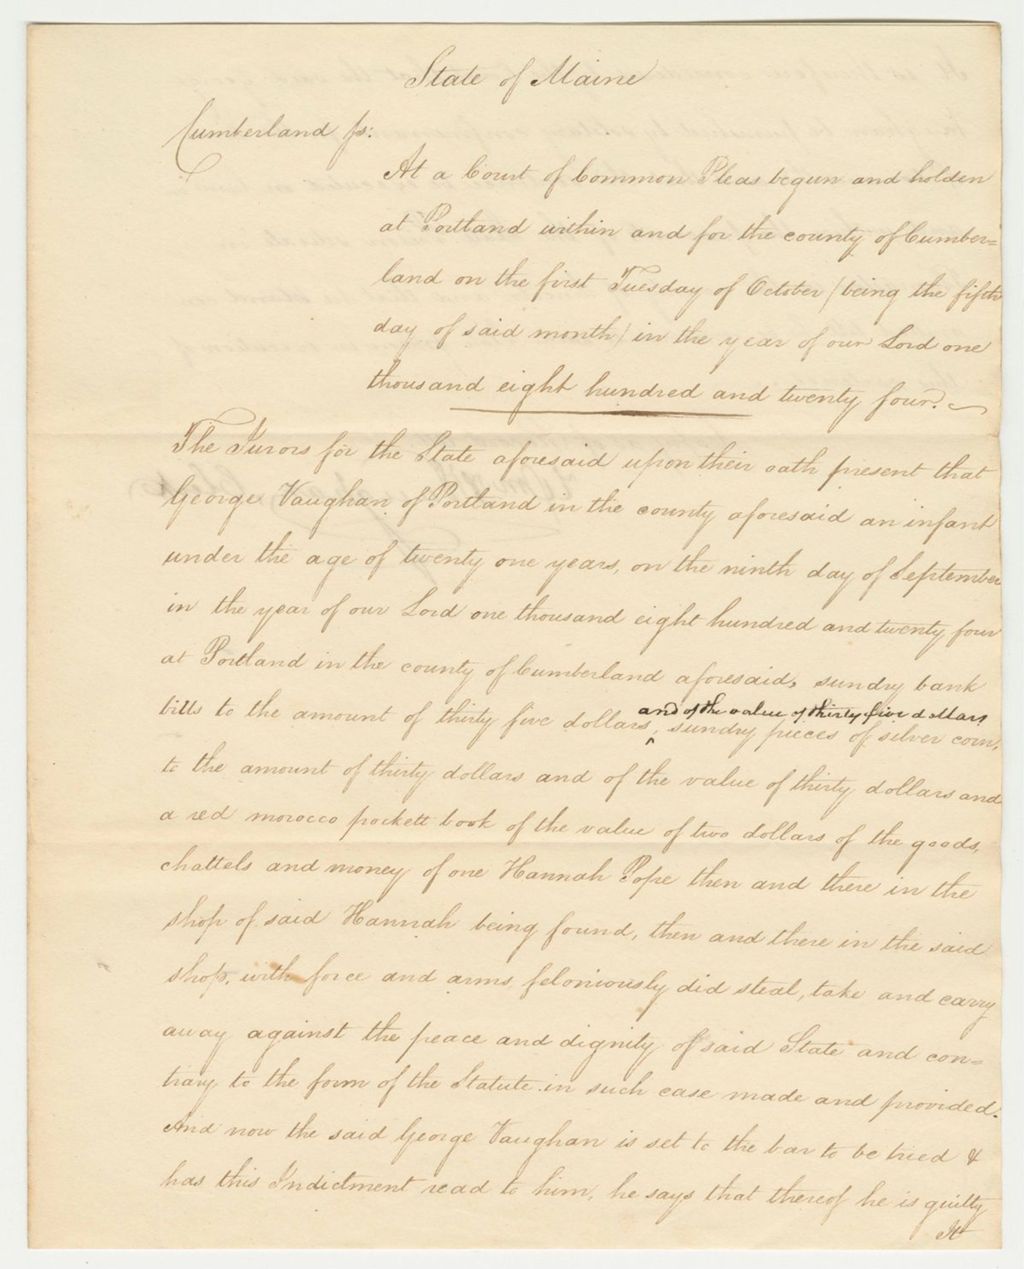 State of Maine
Cumberland ss:
At a Court of Common Pleas begun and holden
at Portland within and for the county of Cumber=
land on the first Tuesday of October (being the fifth
day of said month) in the year of our Lord one
thousand eight hundred and twenty four.
The Jurors for the State aforesaid upon their oath present that
George Vaughan of Portland in the county aforesaid an infant
under the age of twenty one years, on the ninth day of September
in the year of our Lord one thousand eight hundred and twenty four
at Portland in the county of Cumberland aforesaid, sundry bank
and of the value of thirty five dollars
bills to the amount of thirty five dollars, ‸ sundry pieces of silver coin,
to the amount of thirty dollars and of the value of thirty dollars and
a red morocco pockett book of the value of two dollars of the goods,
chattels and money of one Hannah Pope then and there in the
shop of said Hannah being found, then and there in the said
shop, with force and arms, feloniously did steal, take and carry
away against the peace and dignity of said State and con=
trary to the form of the Statute in such case made and provided.
And now the said George Vaughan is set to the bar to be tried &
has this Indictment read to him, he says that thereof he is guilty
It